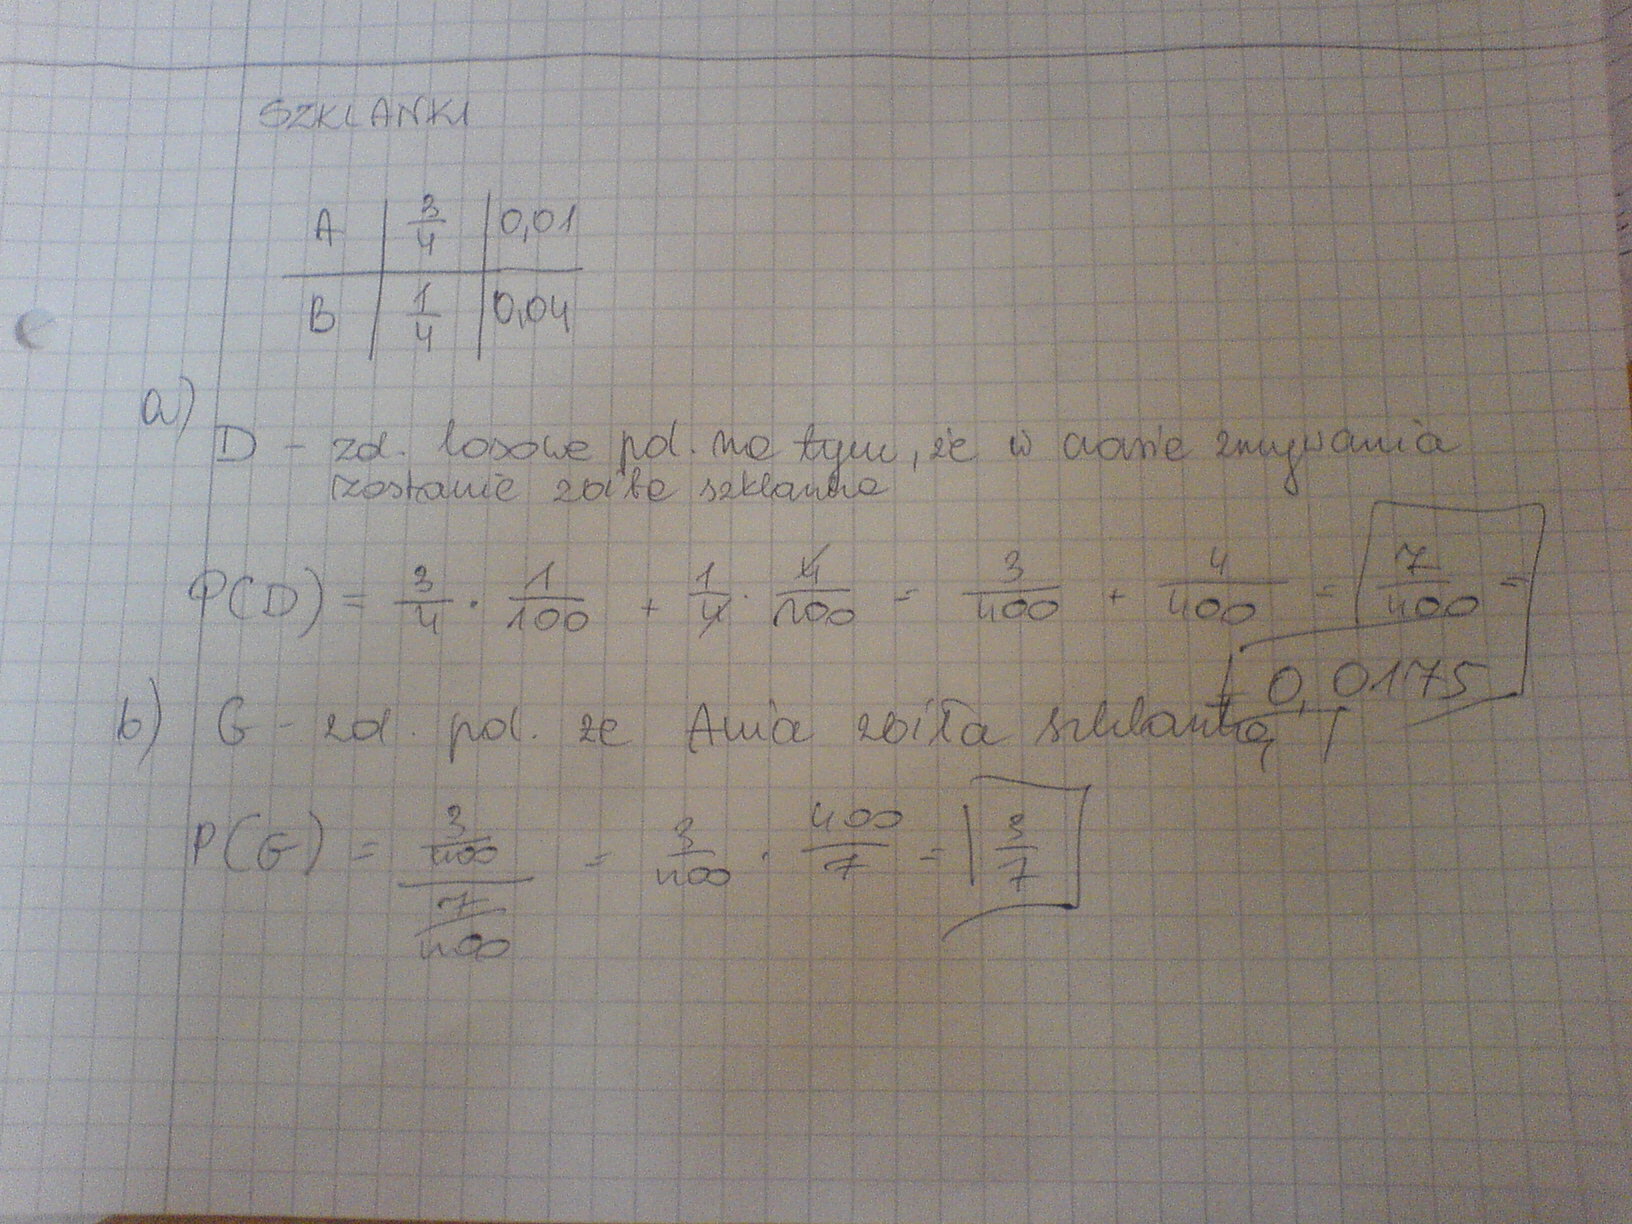 SZKLANKI
A | 3/4 | 0,01
B | 1/4 | 0,04
a)
D - zd. losowe pol. na tym, że w czasie zmywania
zostanie zbita szklanka
P(D) = 3/4 · 1/100 + 1/4 · 4/100 = 3/400 + 4/400 = 7/400 =
= 0,0175
b) G - zd. pol. że Ania zbiła szklankę
P(G) = (3/400)/(7/400) = 3/400 · 400/7 = 3/7